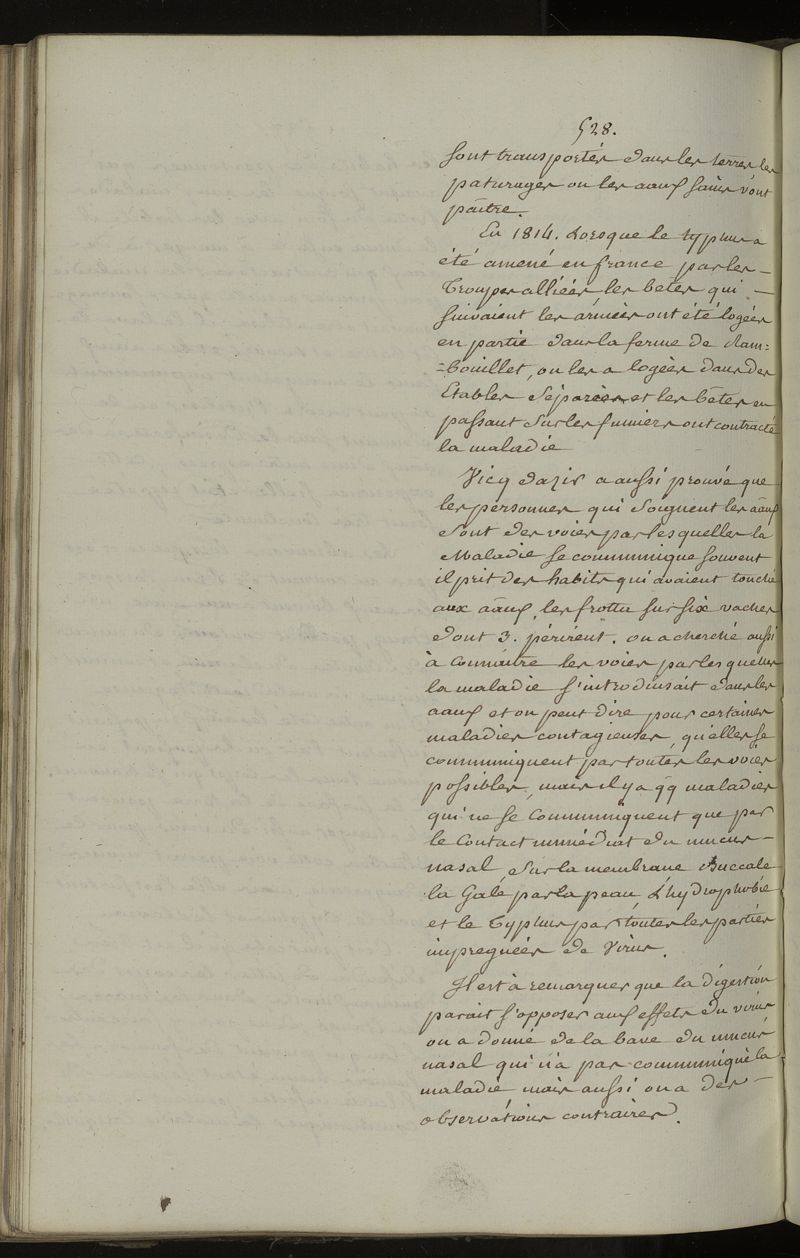 528.
sont transportés dans les terres les
paturages ou les aaux sains vont
paitre.
En 1814. Lorsque le typhus a
été amené en france par les –
Troupes alliées les betes qui –
suivaient les armées ont été logées
en partie dans la ferme de Ram=
=bouillet, on les a logées dans des
Etables séparées et les bêtes en
passant sur les fumiers ont contracté
la maladie
Vicq dazir a aussi prouvé que
les personnes qui soignent les aaux
sont des voies par lesquelles la
Maladie se communique souvent
il prit des habits qui avaient touché
aux aaux, les frotta sur six vaches
dont 3. périrent. on a cherché aussi
à connaitre les voies par lesquelles
la maladie s'introduisait dans les
aaux et on peut dire pour certaines
maladies contagieuses, qu'elles se
communiquent par toutes les voies
possibles, mais il y a qq maladies
qui ne se communiquent que par
le contact immédiat du mucus –
nasal, sur la membrane Buccale
la Gale par la peau, L'hydrophobie
et le Typhus par toutes les parties
impregnées de Virus.
Il est à remarquer que la digestion
parait s'opposer aux effets du virus
on a donné de la bave du mucus
nasal qui n'a pas communiqué la
maladie mais aussi on a des –
observations contraires.